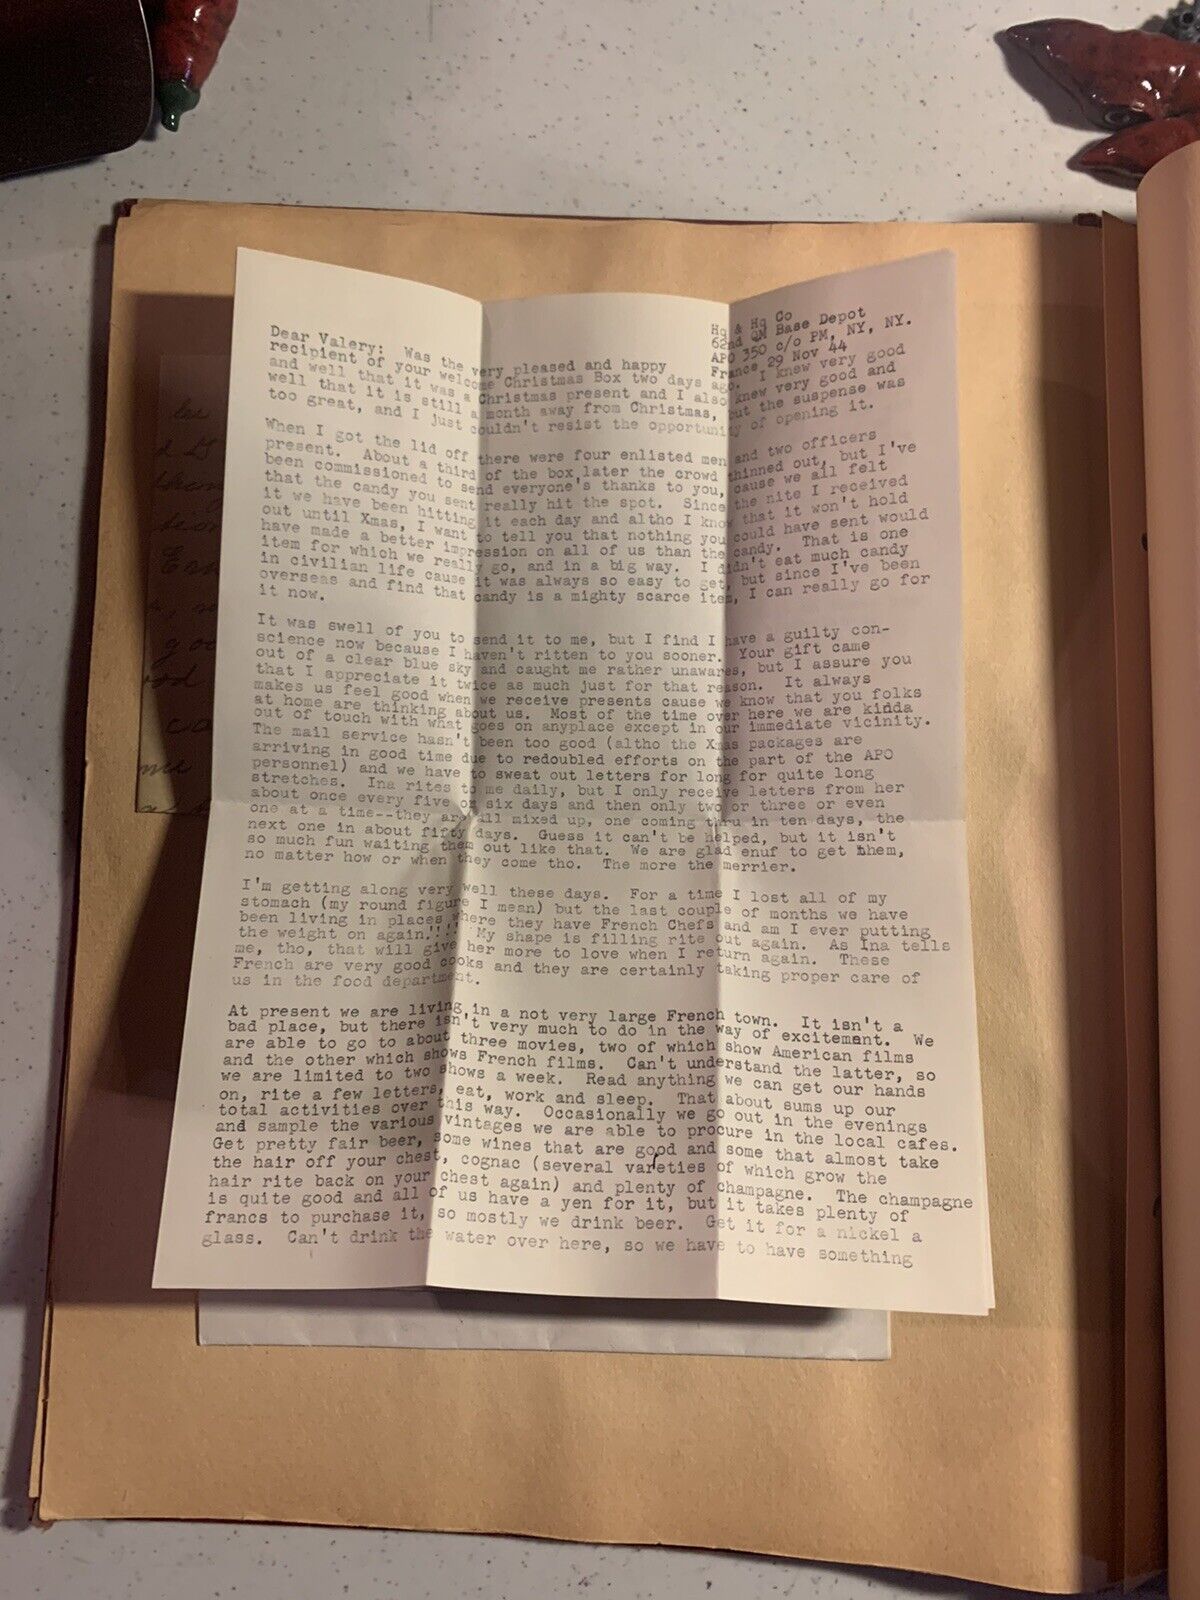 Hq & Hq Co
62nd QM Base Depot
APO 350 c/o PM, NY, NY.
France, 29 Nov 44
Dear Valery: Was the very pleased and happy
recipient of your welcome Christmas Box two days ago. I knew very good
and well that it was a Christmas present and I also knew very good and
well that it is still a month away from Christmas, but the suspense was
too great, and I just couldn't resist the opportunity of opening it.
When I got the lid off there were four enlisted men and two officers
present. About a third of the box later the crowd thinned out, but I've
been commissioned to send everyone's thanks to you, cause we all felt
that the candy you sent really hit the spot. Since the nite I received
it we have been hitting it each day and altho I know that it won't hold
out until Xmas, I want to tell you that nothing you could have sent would
have made a better impression on all of us than the candy. That is one
item for which we really go, and in a big way. I didn't eat much candy
in civilian life cause it was always so easy to get, but since I've been
overseas and find that candy is a mighty scarce item, I can really go for
it now.
It was swell of you to send it to me, but I find I have a guilty con-
science now because I haven't ritten to you sooner. Your gift came
out of a clear blue sky and caught me rather unawares, but I assure you
that I appreciate it twice as much just for that reason. It always
makes us feel good when we receive presents cause we know that you folks
at home are thinking about us. Most of the time over here we are kinda
out of touch with what goes on anyplace except in our immediate vicinity.
The mail service hasn't been too good (altho the Xmas packages are
arriving in good time due to redoubled efforts on the part of the APO
personnel) and we have to sweat out letters for long for quite long
stretches. Ina rites to me daily, but I only receive letters from her
about once every five or six days and then only two or three or even
one at a time--they are all mixed up, one coming thru in ten days, the
next one in about fifty days. Guess it can't be helped, but it isn't
so much fun waiting them out like that. We are glad enuf to get them,
no matter how or when they come tho. The more the merrier.
I'm getting along very well these days. For a time I lost all of my
stomach (my round figure I mean) but the last couple of months we have
been living in places where they have French Chefs and am I ever putting
the weight on again.!!!! My shape is filling rite out again. As Ina tells
me, tho, that will give her more to love when I return again. These
French are very good cooks and they are certainly taking proper care of
us in the food department.
At present we are living in a not very large French town. It isn't a
bad place, but there isn't very much to do in the way of excitement. We
are able to go to about three movies, two of which show American films
and the other which shows French films. Can't understand the latter, so
we are limited to two shows a week. Read anything we can get our hands
on, rite a few letters, eat, work and sleep. That about sums up our
total activities over this way. Occasionally we go out in the evenings
and sample the various vintages we are able to procure in the local cafes.
Get pretty fair beer, some wines that are good and some that almost take
the hair off your chest, cognac (several varieties of which grow the
hair rite back on your chest again) and plenty of champagne. The champagne
is quite good and all of us have a yen for it, but it takes plenty of
francs to purchase it, so mostly we drink beer. Get it for a nickel a
glass. Can't drink the water over here, so we have to have something